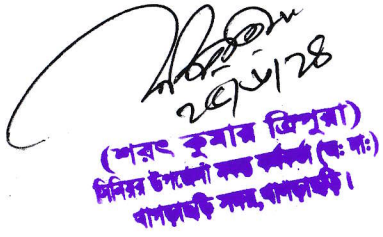 ২৫/৮/২৪
(শরৎ কুমার ত্রিপুরা)
সিনিয়র উপজেলা মৎস্য কর্মকর্তা (অ: দা:)
খাগড়াছড়ি সদর, খাগড়াছড়ি।